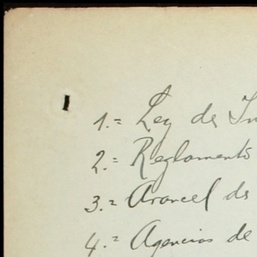 1.= Ley de In
2.= Reglamento
3.= Arancel de
4.= Agencias de